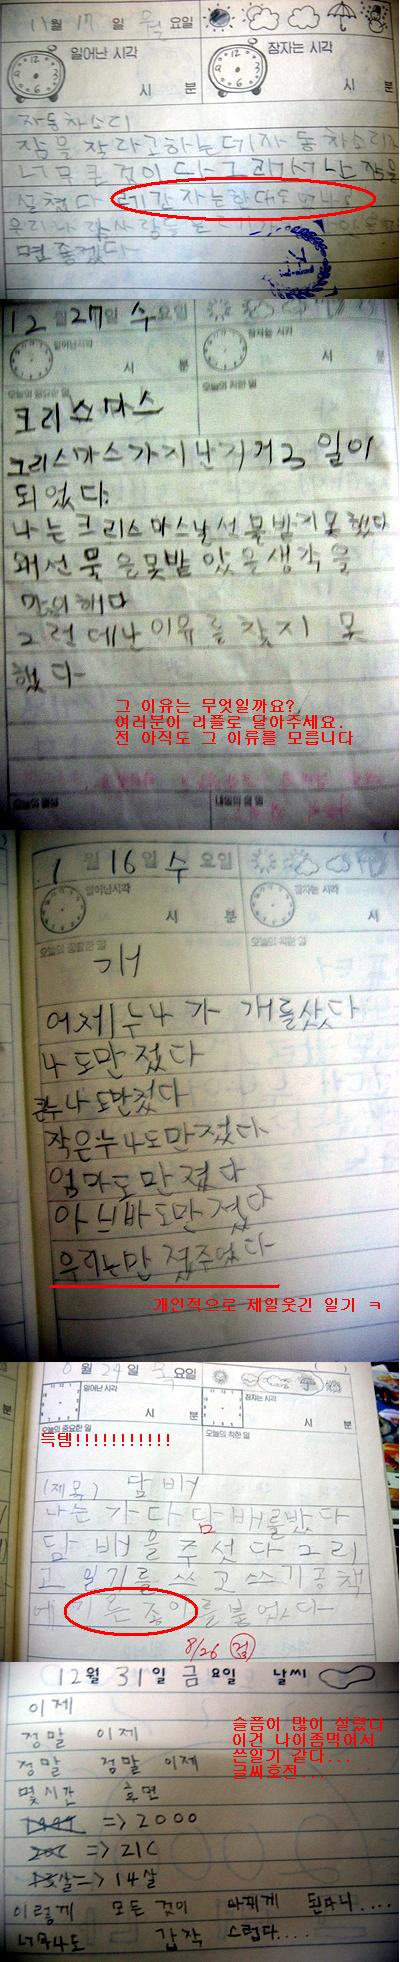 11월 17일 월요일
일어난 시각
잠자는 시각
시 분
시 분
자동차소리
잠을 잘라고하는데자동차소리가
너무 큰것이다 그래서 난 잠을
설쳤다
면 좋겠다
12월 27일 수요일
일어난시각
잠자는 시각
시 분
시 분
오늘의 중요한 일
오늘의 착한 일
크리스마스
크리스마스가지난지거2일이
되었다.
나는 크리스마스날선물받지못했다
왜선물을못받았을생각을
많이해다
그런데난이유를찾지못
했다
그 이유는 무엇일까요?
여러분이 리플로 달아주세요.
전 아직도 그 이류를 모릅니다
오늘의 반성
내일의 할 일
1월 16일 수요일
일어난시각
잠자는 시각
시 분
시
오늘의 중요한 일
오늘의 착한 일
개
어제누나가 개를샀다
나도만젔다
큰누나도만젔다
작은누나도만젔다
엄마도만젔다
아빠도만젔다
우리는만젔주었다
개인적으로 제일웃긴 일기 ㅋ
월 24일 목요일
일어난 시각
잠자는 시각
시 분
시
오늘의 중요한 일
오늘의 착한 일
득템!!!!!!!!!!!
(제목) 담배
나는 가다담배를밨다
담배을주섯다그리
고일기를쓰고쓰기공책
에기른종이를붙었다
8/26 검
12월 31일 금요일 날씨
슬픔이 많이 실렸다
이건 나이좀먹어서
쓴일기 같다...
글씨호전...
이제
정말 이제
정말 정말 이제
몇시간 후면
1999 => 2000
20C => 21C
13살 => 14살
이렇게 모든것이 바뀌게 된다니....
너무나도 갑작스럽다....